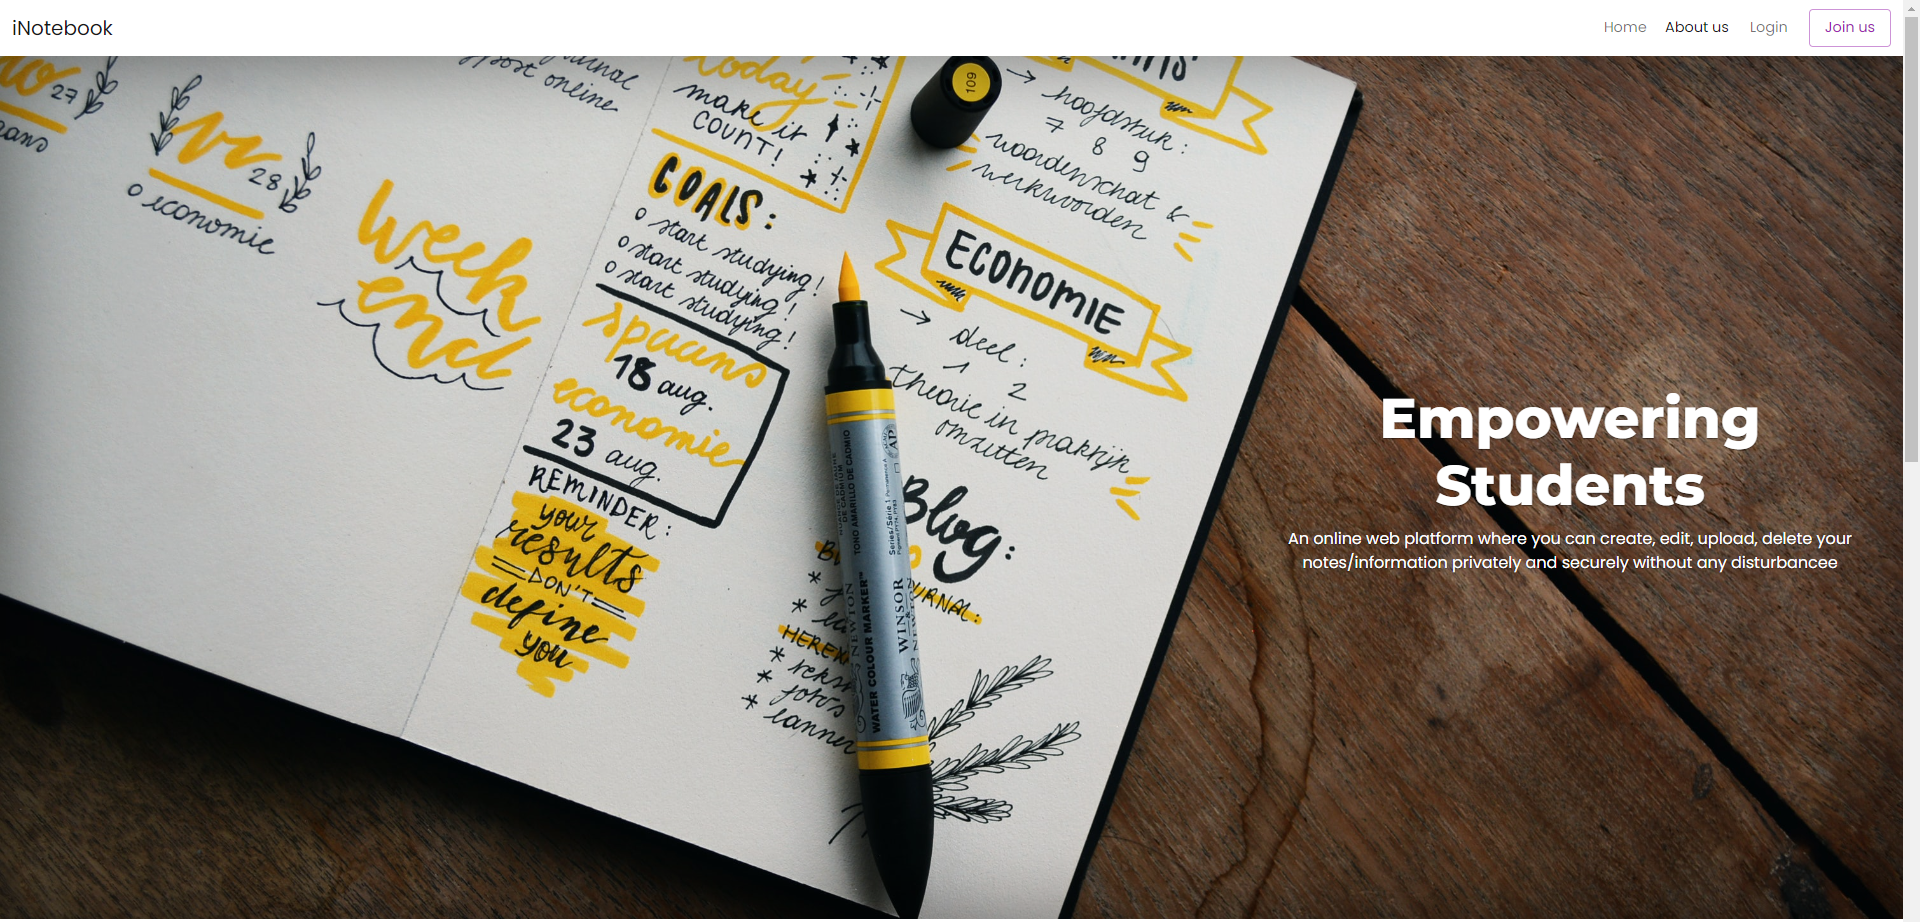 iNotebook
Home
About us
Login
Join us
27
vr
28
o economie
week
end
post online
today
make it
COUNT!
GOALS:
o start studying!
o start studying!
o start studying!
spaans
18 aug.
economie
23 aug.
REMINDER:
your
results
DON'T
define
you
109
→ hoofdstuk:
7 8 9
woordenschat &
werkwoorden
ECONOMIE
→ deel:
1 2
theorie in praktijk
omzetten
Blog:
TONO AMARILLO DE CADMIO
Series/Série 1
AP
WATER COLOUR MARKER™
WINSOR
&
NEWTON
Empowering
Students
An online web platform where you can create, edit, upload, delete your
notes/information privately and securely without any disturbancee